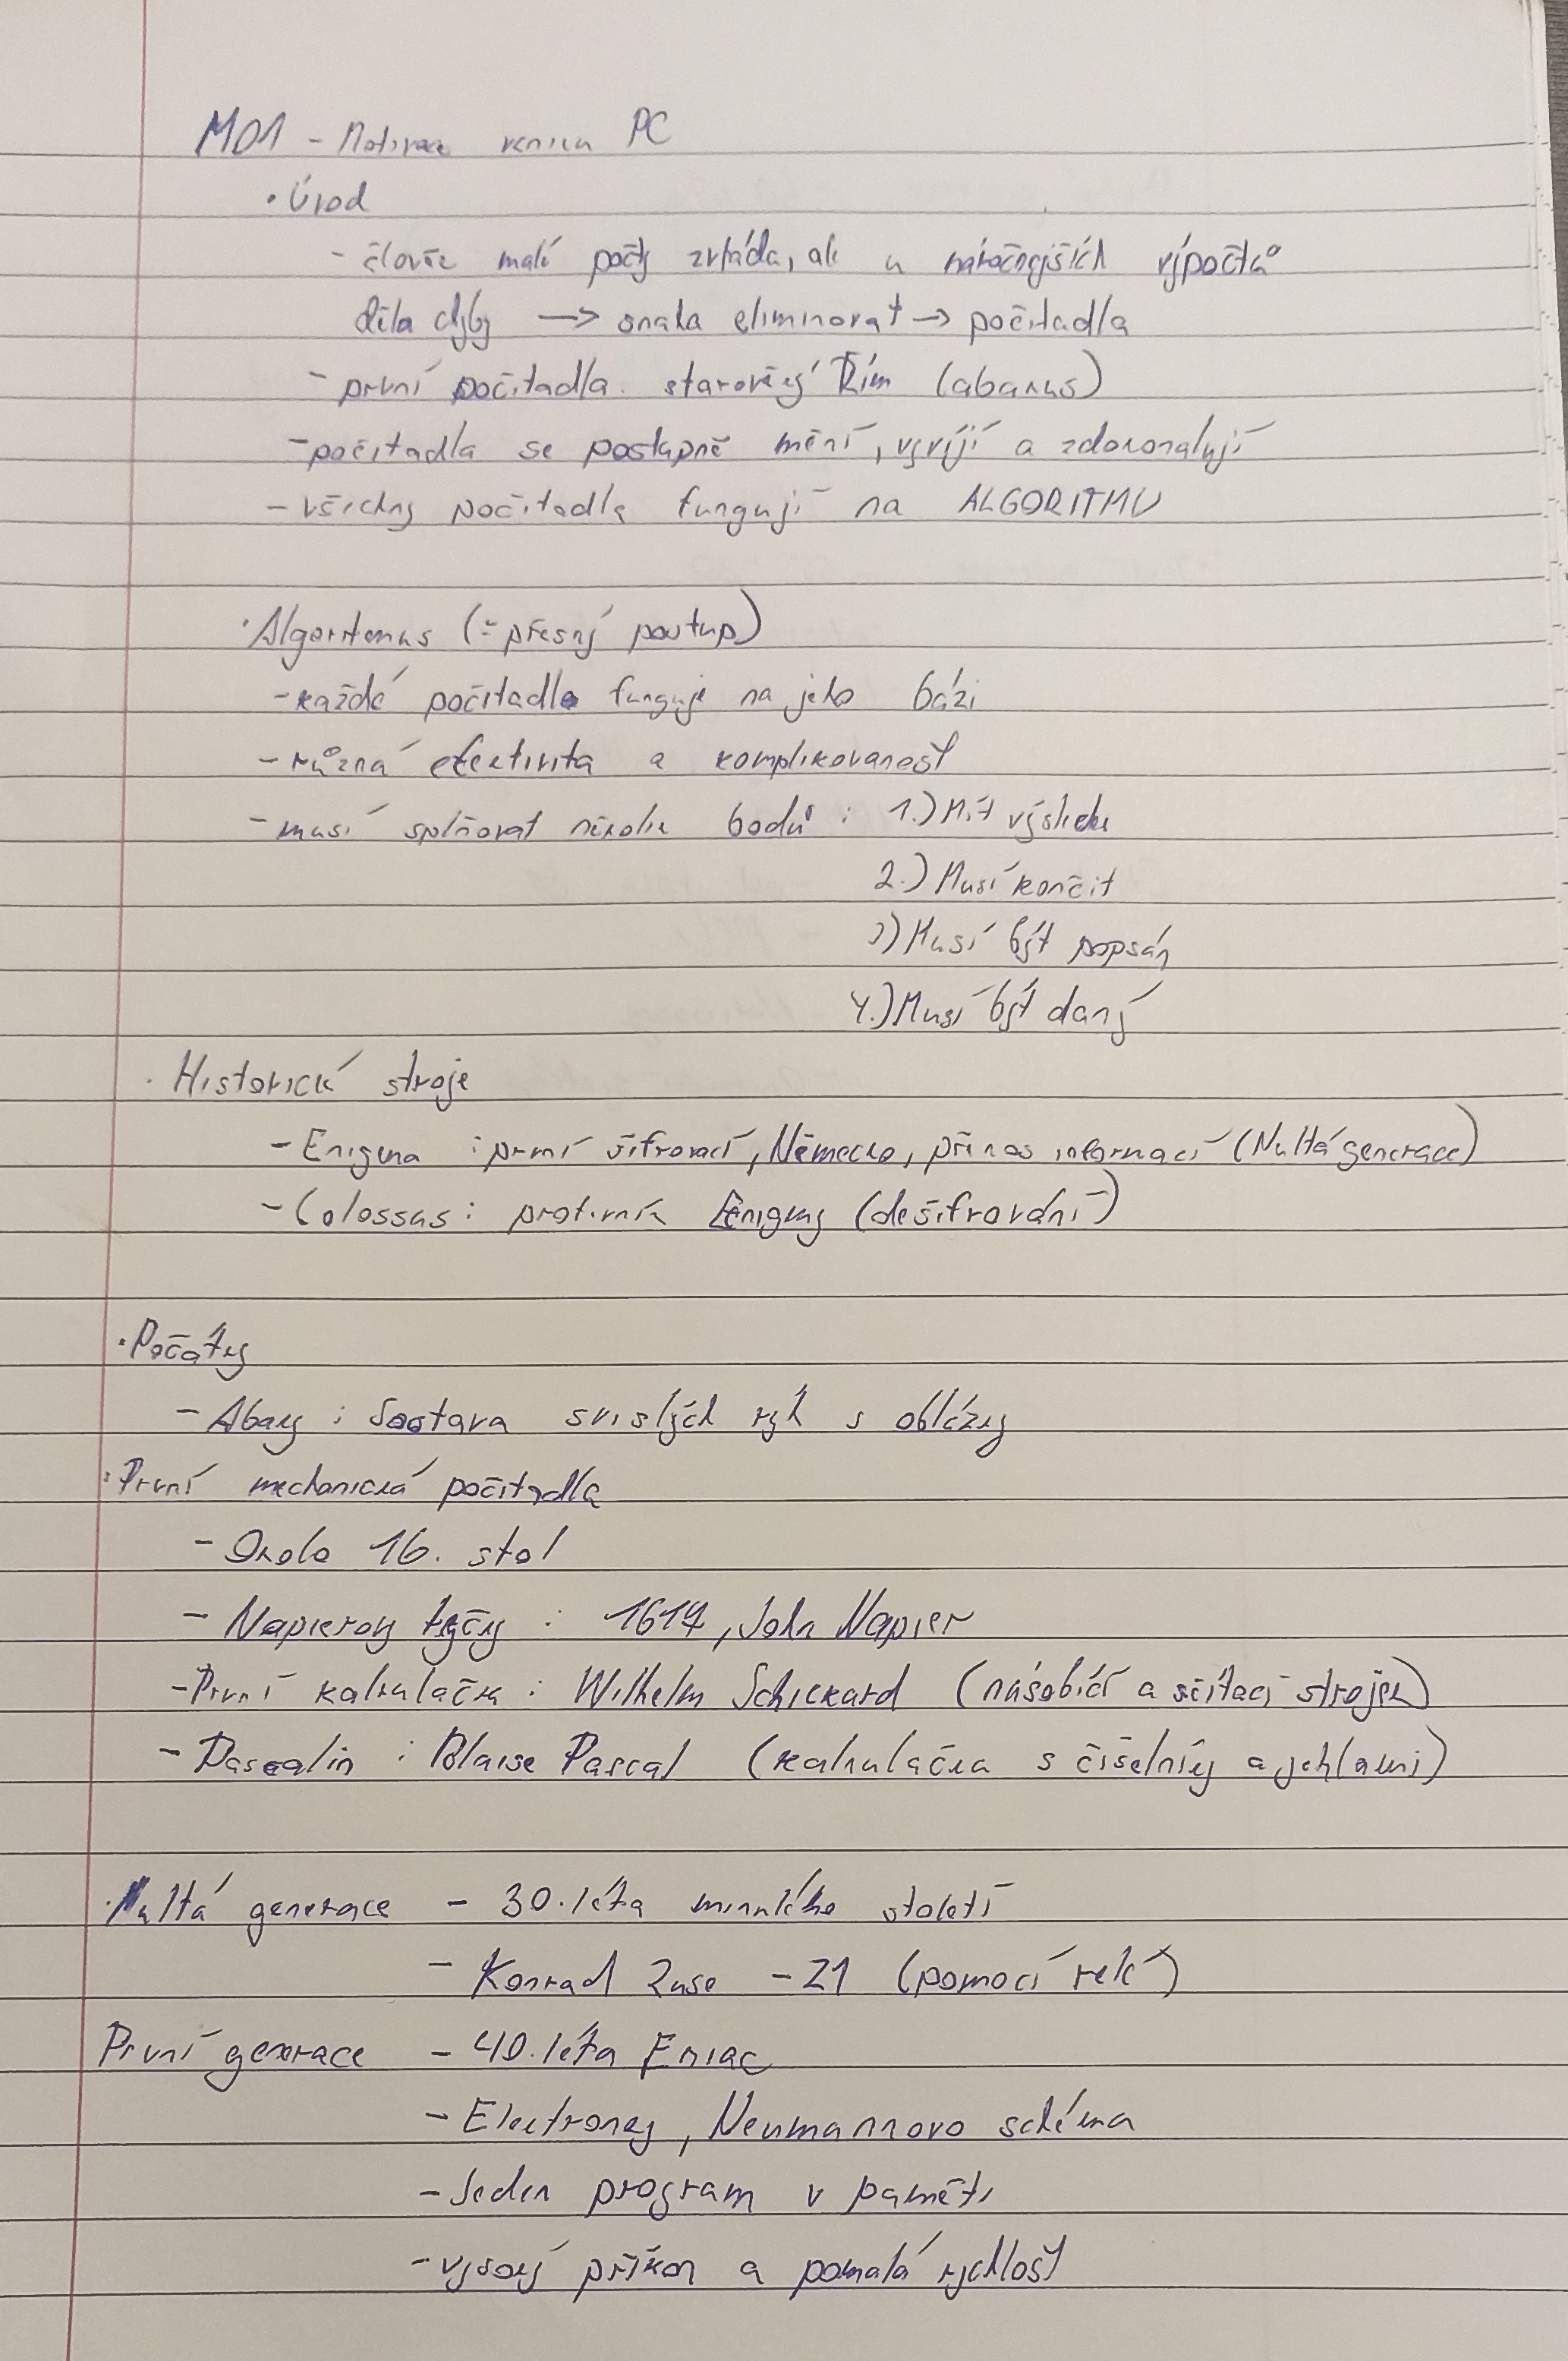 M01 - Motivace vzniku PC
• Úvod
- člověk malé počty zvládá, ale u náročnějších výpočtů
dělá chyby → snaha eliminovat → počítadla
- první počítadla starověký Řím (abakus)
- počítadla se postupně mění, vyvíjí a zdokonalují
- všechny počítadla fungují na ALGORITMU
• Algoritmus (= přesný postup)
- každé počítadlo funguje na jeho bázi
- různá efektivita a komplikovanost
- musí splňovat několik bodů : 1.) Mít výsledek
2.) Musí končit
3) Musí být popsán
4.) Musí být daný
• Historické stroje
- Enigma : první šifrovací, Německo, přenos informací (Nultá generace)
- Colossus : protivník Enigmy (dešifrování)
• Počátky
- Abaky : Soustava svislých rýh s oblázky
• První mechanická počítadla
- Okolo 16. stol
- Napierovy tyčky : 1617, John Napier
- První kalkulačka : Wilhelm Schickard (násobící a sčítací strojek)
- Pascalin : Blaise Pascal (kalkulačka s číselníky a jehlami)
• Nultá generace - 30. léta minulého století
- Konrad Zuse - Z1 (pomocí relé)
První generace - 40. léta Eniac
- Electronky, Neumannovo schéma
- Jeden program v paměti
- vysoký příkon a pomalá rychlost